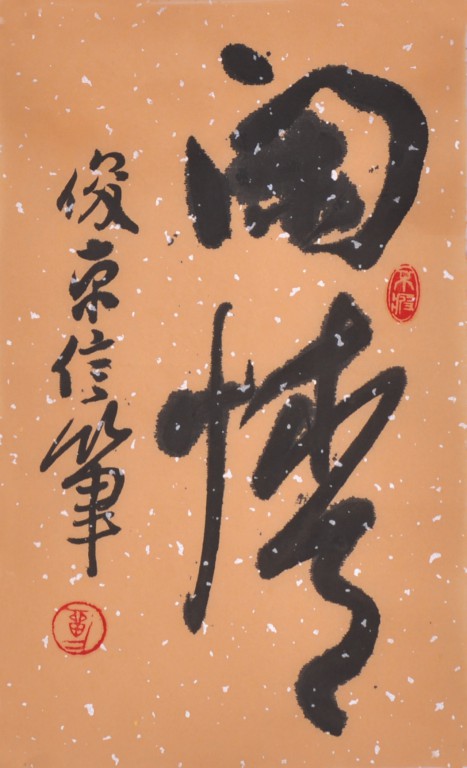 闲情
俊京信筆